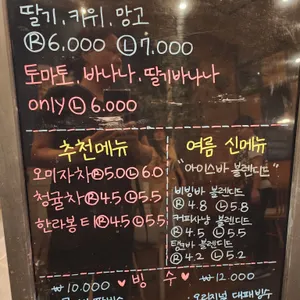 딸기, 키위, 망고
Ⓡ6.000 Ⓛ7.000
토마토, 바나나, 딸기바나나
only Ⓛ 6.000
추천메뉴
오미자차Ⓡ5.0Ⓛ6.0
청귤차Ⓡ4.5Ⓛ5.5
한라봉티Ⓡ4.5Ⓛ5.5
여름 신메뉴
"아이스바 블렌디드"
비빙바 블렌디드
Ⓡ 4.8 Ⓛ 5.8
커피사냥 블렌디드
Ⓡ 4.5 Ⓛ 5.5
탱크바 블렌디드
Ⓡ 4.2 Ⓛ 5.2
₩10.000 ♥ 빙 수 ♥ ₩12.000
오리지널 대패빙수